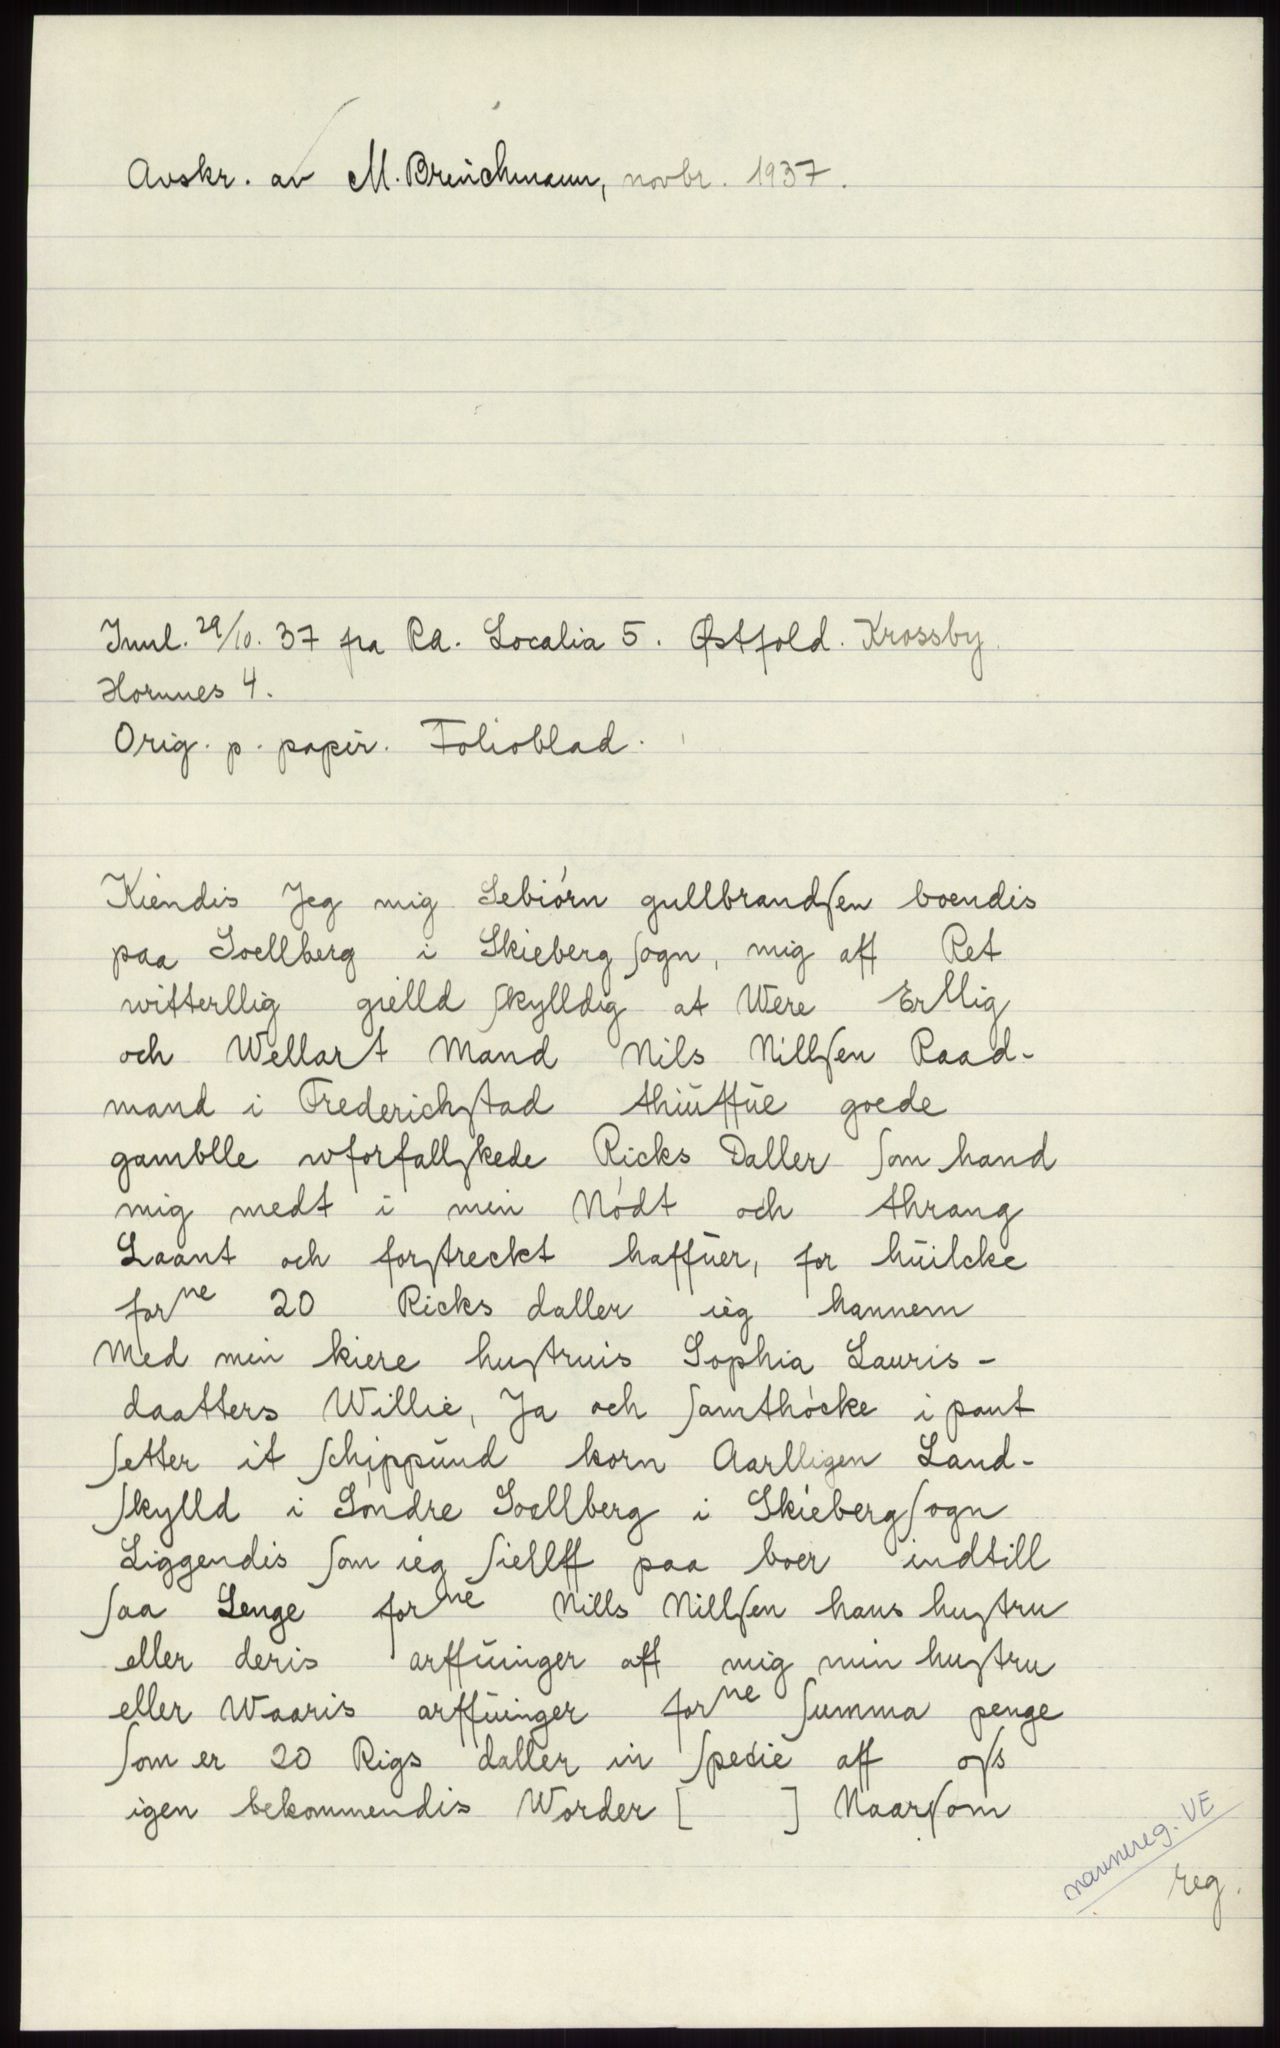 Avskr. av M. Breuichmann, novbr. 1937.
Innl. 29/10. 37 fra RA. Localia 5. Østfold. Krossby
Hornnes 4.
Orig. p. papir. Folioblad.
Kiendis Jeg mig Sebiórn gullbrandſen boendis
paa Soellberg i Skieberg ſogn, mig aff Ret
witterllig gielld ſkylldig at Were Erllig
och Wellart Mand Nils Nillſen Raad-
mand i Frederichſtad thiuffue goede
gamblle wforfallſkede Ricks Daller ſom hand
mig medt i min Nódt och thrang
Laant och forſtreckt haffuer, for huilcke
forne 20 Ricks daller ieg hannem
Med min kiere huſtruis Sophia Lauris-
daatters Willie, Ja och ſamthócke i pant
ſetter it ſchippund korn Aarlligen Land-
ſkylld i Sóndre Soellberg i Skieberg ſogn
Liggendis ſom ieg ſiellff paa boer indtill
ſaa Lenge forne Nills Nillſen hans huſtru
eller deris arffuinger aff mig min huſtru
eller Waaris arffuinger forne ſumma penge
ſom er 20 Rigs daller in ſpecie aff oſs
igen bekommendis Worder [ ] Naarſom
navnereg. VE
reg.